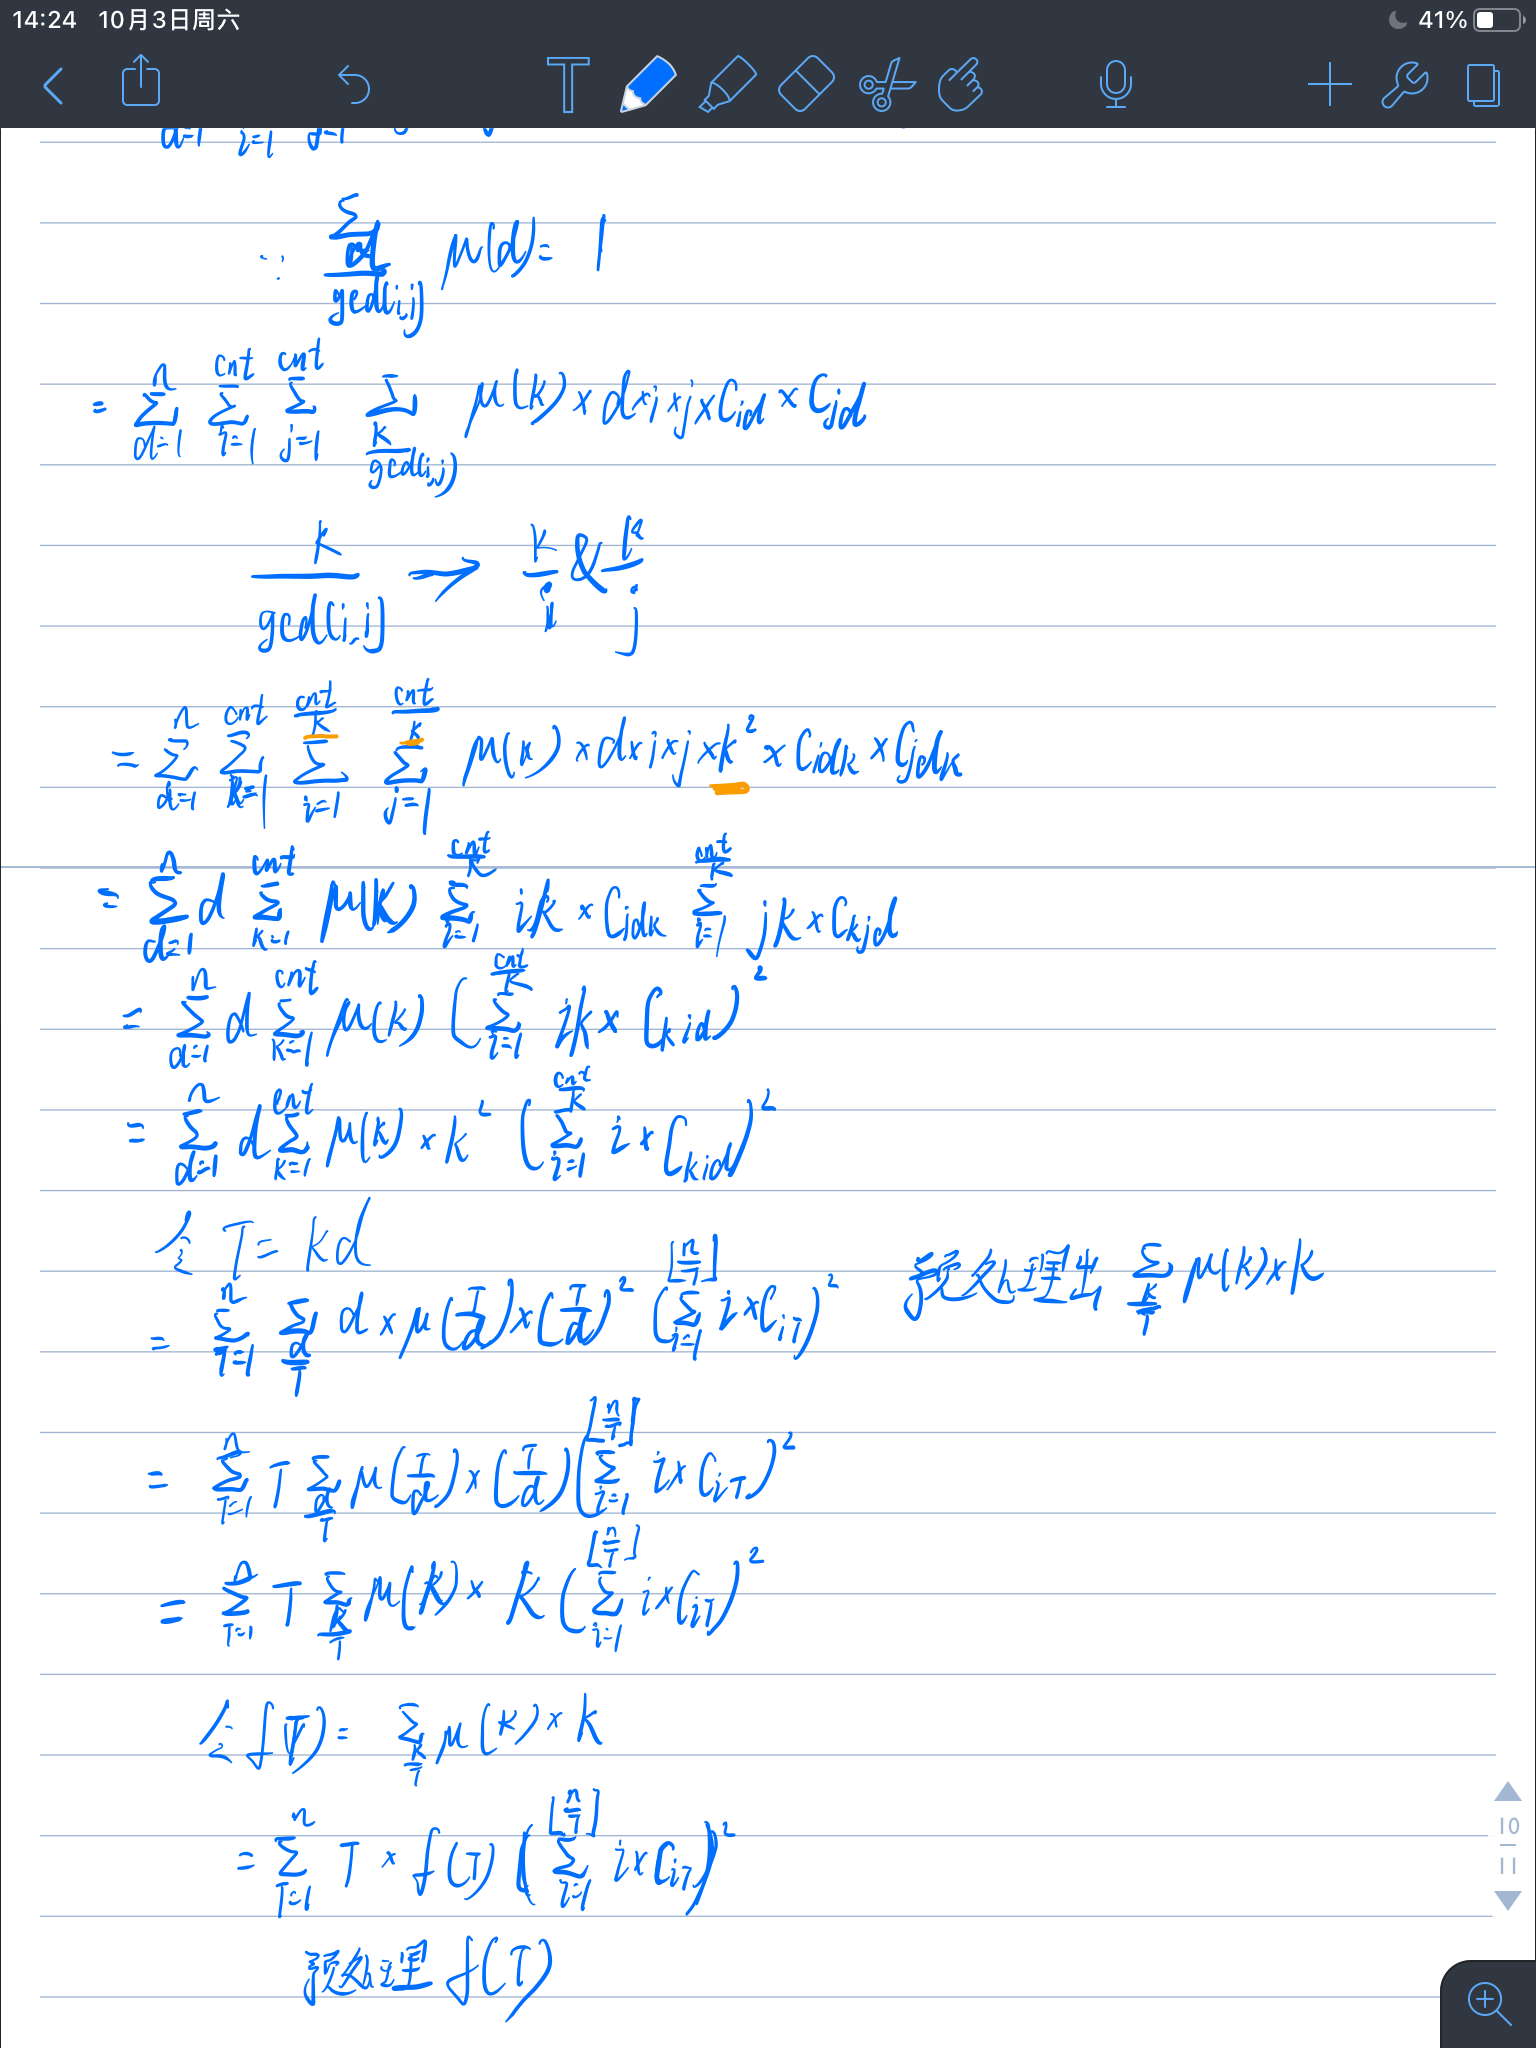 14:24 10月3日周六 41%
d=1 i=1 j=1
∵ ∑_{d/gcd(i,j)} μ(d) = 1
= ∑_{d=1}^{n} ∑_{i=1}^{cnt} ∑_{j=1}^{cnt} ∑_{k/gcd(i,j)} μ(k) × d × i × j × C_{id} × C_{jd}
k/gcd(i,j) → k/i & k/j
= ∑_{d=1}^{n} ∑_{k=1}^{cnt} ∑_{i=1}^{cnt/k} ∑_{j=1}^{cnt/k} μ(k) × d × i × j × k² × C_{idk} × C_{jdk}
= ∑_{d=1}^{n} d ∑_{k=1}^{cnt} μ(k) ∑_{i=1}^{cnt/k} ik × C_{idk} ∑_{i=1}^{cnt/k} jk × C_{kjd}
= ∑_{d=1}^{n} d ∑_{k=1}^{cnt} μ(k) (∑_{i=1}^{cnt/k} ik × C_{kid})²
= ∑_{d=1}^{n} d ∑_{k=1}^{cnt} μ(k) × k² (∑_{i=1}^{cnt/k} i × C_{kid})²
令 T = kd
= ∑_{T=1}^{n} ∑_{d/T} d × μ(T/d) × (T/d)² (∑_{i=1}^{[n/T]} i × C_{iT})² 预处理出 ∑_{k/T} μ(k) × k
= ∑_{T=1}^{n} T ∑_{d/T} μ(T/d) × (T/d) (∑_{i=1}^{[n/T]} i × C_{iT})²
= ∑_{T=1}^{n} T ∑_{k/T} μ(k) × k (∑_{i=1}^{[n/T]} i × C_{iT})²
令 f(T) = ∑_{k/T} μ(k) × k
= ∑_{T=1}^{n} T × f(T) (∑_{i=1}^{[n/T]} i × C_{iT})²
预处理 f(T)
10
11